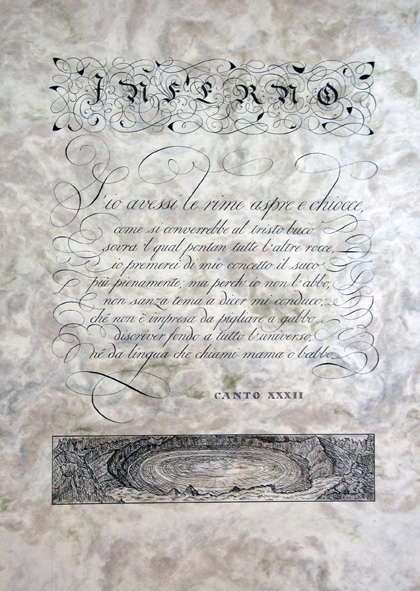 INFERNO
S'io avessi le rime aspre e chiocce,
come si converrebbe al tristo buco
sovra 'l qual pontan tutte l'altre rocce,
io premerei di mio concetto il suco
più pienamente; ma perch' io non l'abbo,
non sanza tema a dicer mi conduco;
ché non è impresa da pigliare a gabbo
discriver fondo a tutto l'universo,
né da lingua che chiami mama o babbo.
CANTO XXXII